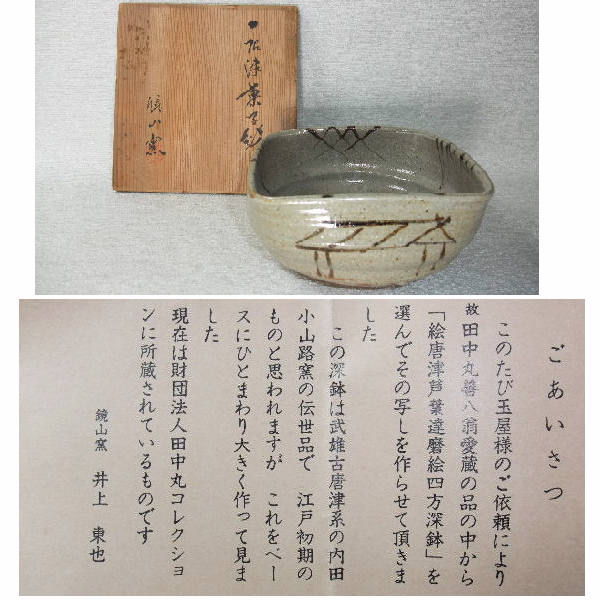 唐津菓子鉢
鏡山窯
ごあいさつ
このたび玉屋様のご依頼により
故田中丸善八翁愛蔵の品の中から
「絵唐津芦葉達磨絵四方深鉢」を
選んでその写しを作らせて頂きま
した
この深鉢は武雄古唐津系の内田
小山路窯の伝世品で 江戸初期の
ものと思われますが これをベー
スにひとまわり大きく作って見ま
した
現在は財団法人田中丸コレクショ
ンに所蔵されているものです
鏡山窯 井上東也